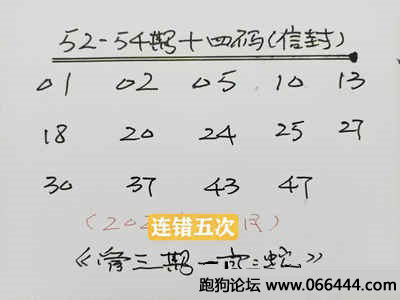 52-54期十四码(信封)
01 02 05 10 13
18 20 24 25 27
30 37 43 47
(202
连错五次
三期一
跑狗论坛: www.066444.com